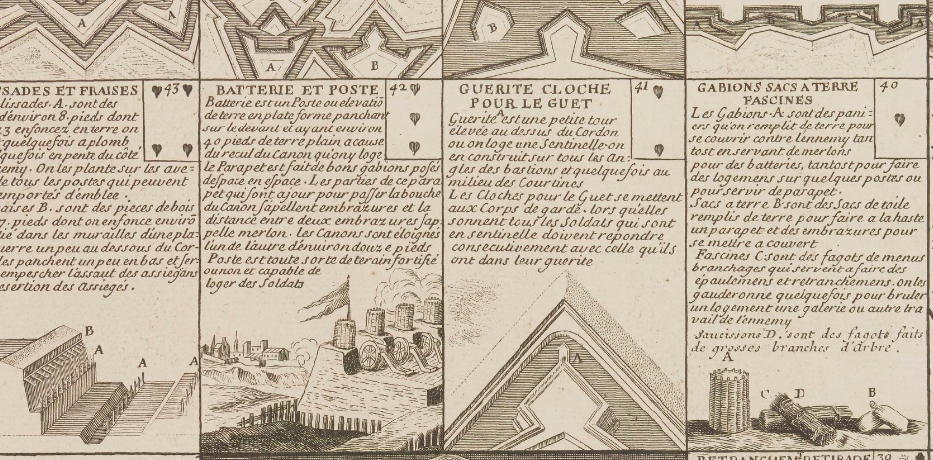 A
A
A
B
B
A
SADES ET FRAISES 43
lissades. A. sont des
d'environ 8. pieds dont
3 enfoncez en terre on
quelquefois a plomb
quefois en pente du côté
emy. On les plante sur les ave=
de tous les postes qui peuvent
emportés d'emblée.
aises B. sont des pieces de bois
pieds dont on enfonce enviro
ié dans les murailles dune pla
uerre un peu au dessous du Cor-
les panchent un peu en bas et ser-
empescher l'assaut des assiegans
desertion des Assiegés.
B
A
A
A
BATTERIE ET POSTE 42
Batterie est un Poste ou elevatiō
de terre en plate forme panchant
sur le devant et ayant environ
40 pieds de terre plain a cause
du recul du Canon qu'ony loge
le Parapet est fait de bons gabions posés
despace en espace. Les parties de ce para
pet qui sont ajour pour passer la bouche
du Canon s'apellent embrazures et la
distance entre deux embrazures s'ap
pelle merlon. les Canons sont éloignés
l'un de l'autre d'environ douze pieds
Poste est toute sorte de terain fortifié
ou non et capable de
loger des Soldats
GUERITE CLOCHE 41
POUR LE GUET
A
Guerite est une petite tour
elevée au dessus du Cordon
ou on loge une Sentinelle on
en construit sur tous les An=
gles des bastions et quelquefois au
milieu des Courtines
Les Cloches pour le Guet se mettent
aux Corps de garde. lors qu'elles
sonnent tous les Soldats qui sont
en sentinelle doivent repondre
consecutivement avec celle qu'ils
ont dans leur guerite
A
GABIONS SACS A TERRE 40
FASCINES
Les Gabions. A. sont des pani=
ers qu'on remplit de terre pour
se couvrir contre l'ennemy tan
tost en servant de merlons
pour des batteries, tantost pour faire
des logemens sur quelques postes ou
pour servir de parapet.
Sacs a terre B sont des Sacs de toile
remplis de terre pour faire a la haste
un parapet et des embrazures pour
se mettre a couvert
Fascines C. sont des fagots de menus
branchages qui servent a faire des
épaulemens et retranchemens. on les
gauderonne quelquefois pour bruler
un logement une galerie ou autre tra
vail de l'ennemy
Saucissons D. sont des fagots faits
de grosses branches d'Arbre.
A
C
D
B
RETRANCHEM RETIRADE 39